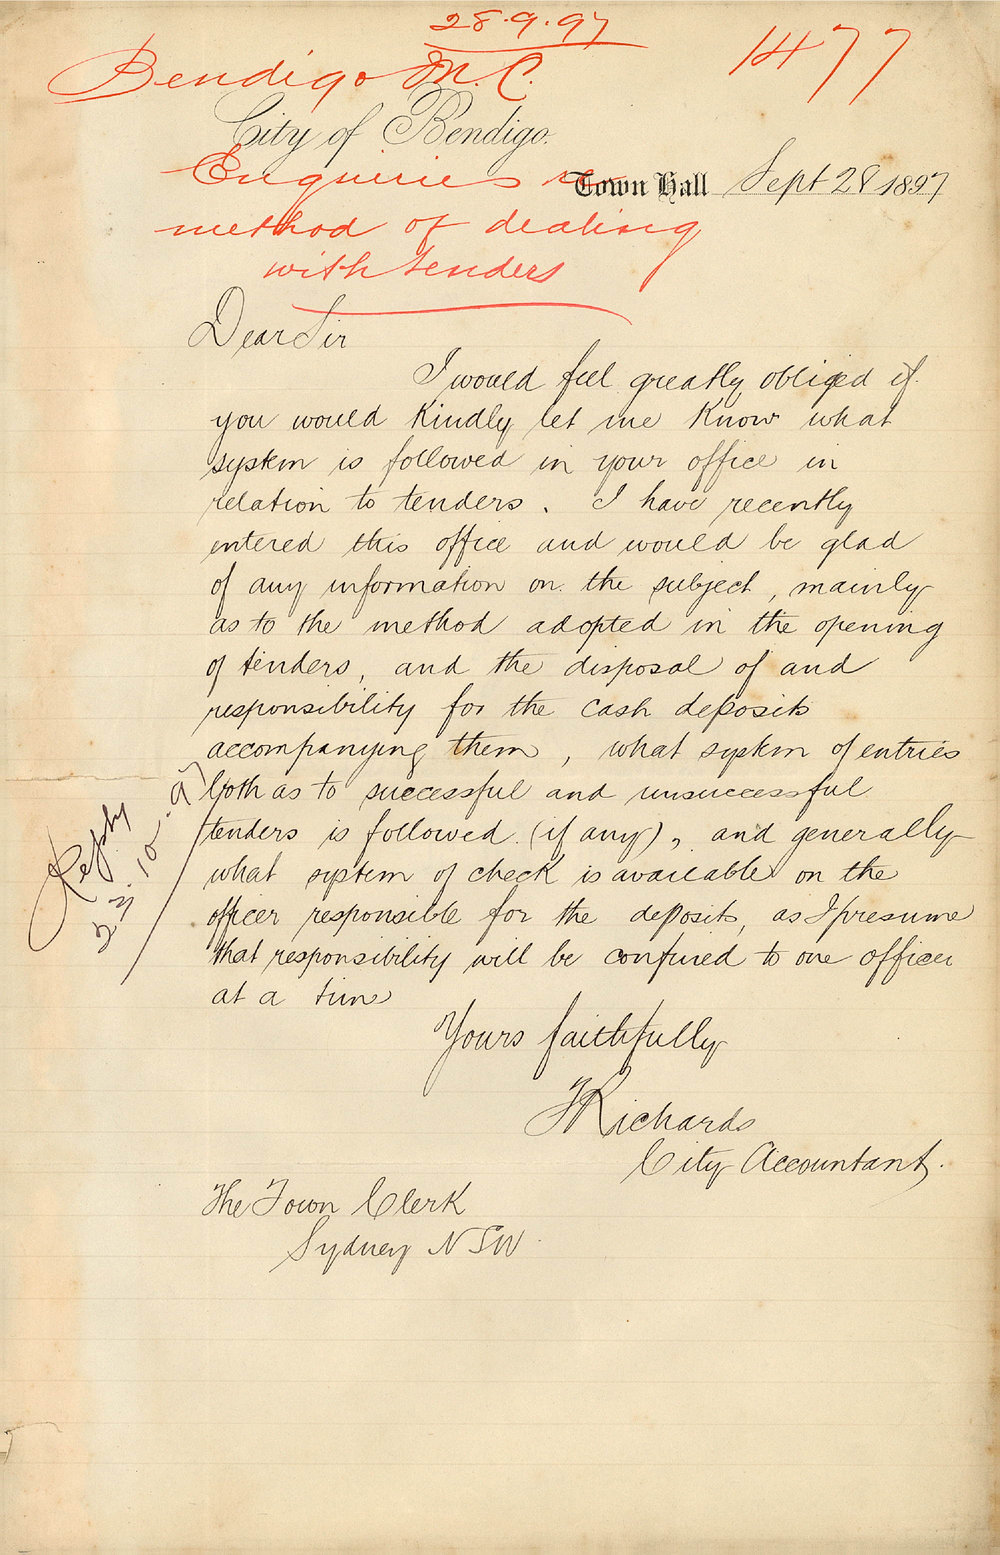 28.9.97
Bendigo M.C.
1477
City of Bendigo.
Enquiries re
Town Hall Sept 28 1897
method of dealing
with tenders
Dear Sir
I would feel greatly obliged if
you would kindly let me know what
system is followed in your office in
relation to tenders. I have recently
entered this office and would be glad
of any information on the subject, mainly
as to the method adopted in the opening
of tenders, and the disposal of and
responsibility for the cash deposits
accompanying them, what system of entries
both as to successful and unsuccessful
tenders is followed (if any), and generally
what system of check is available on the
officer responsible for the deposits, as I presume
that responsibility will be confined to one officer
at a time
Reply
23.10.97
Yours faithfully
J Richards
City Accountant.
The Town Clerk
Sydney NSW